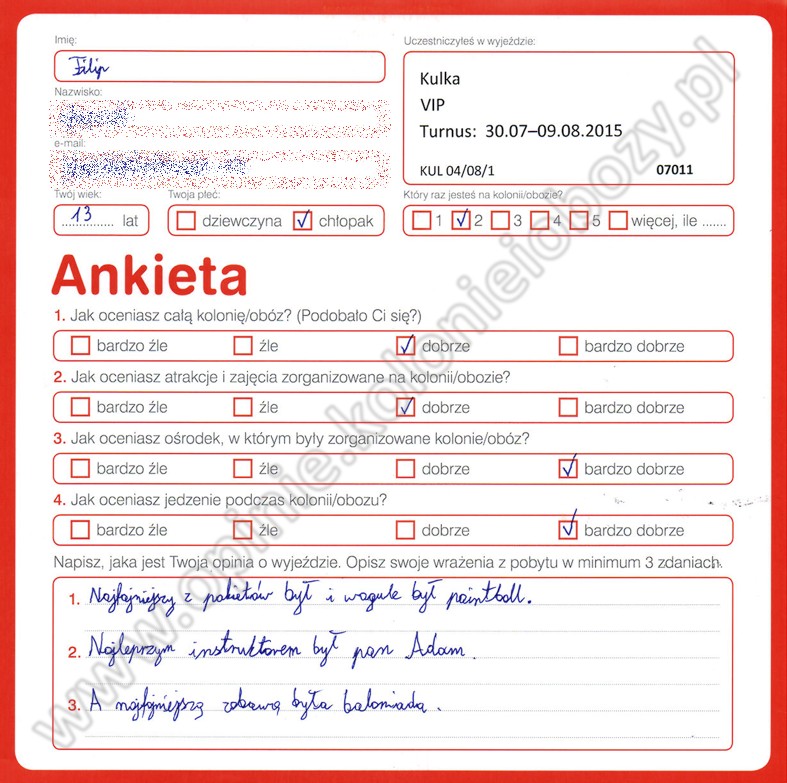 Imię:
Filip
Nazwisko:
e-mail:
Twój wiek:
13 lat
Twoja płeć:
dziewczyna chłopak
Uczestniczyłeś w wyjeździe:
Kulka
VIP
Turnus: 30.07–09.08.2015
KUL 04/08/1 07011
Który raz jesteś na kolonii/obozie?
1 2 3 4 5 więcej, ile .......
Ankieta
1. Jak oceniasz całą kolonię/obóz? (Podobało Ci się?)
bardzo źle źle dobrze bardzo dobrze
2. Jak oceniasz atrakcje i zajęcia zorganizowane na kolonii/obozie?
bardzo źle źle dobrze bardzo dobrze
3. Jak oceniasz ośrodek, w którym byly zorganizowane kolonie/obóz?
bardzo źle źle dobrze bardzo dobrze
4. Jak oceniasz jedzenie podczas kolonii/obozu?
bardzo źle źle dobrze bardzo dobrze
Napisz, jaka jest Twoja opinia o wyjeździe. Opisz swoje wrażenia z pobytu w minimum 3 zdaniach.
1. Najfajniejszy z pakietów był i wogule był paintball.
2. Najleprzym instruktorem był pan Adam.
3. A najfajniejszą zabawą była baloniada.
www.opinie.kolonieiobozy.pl